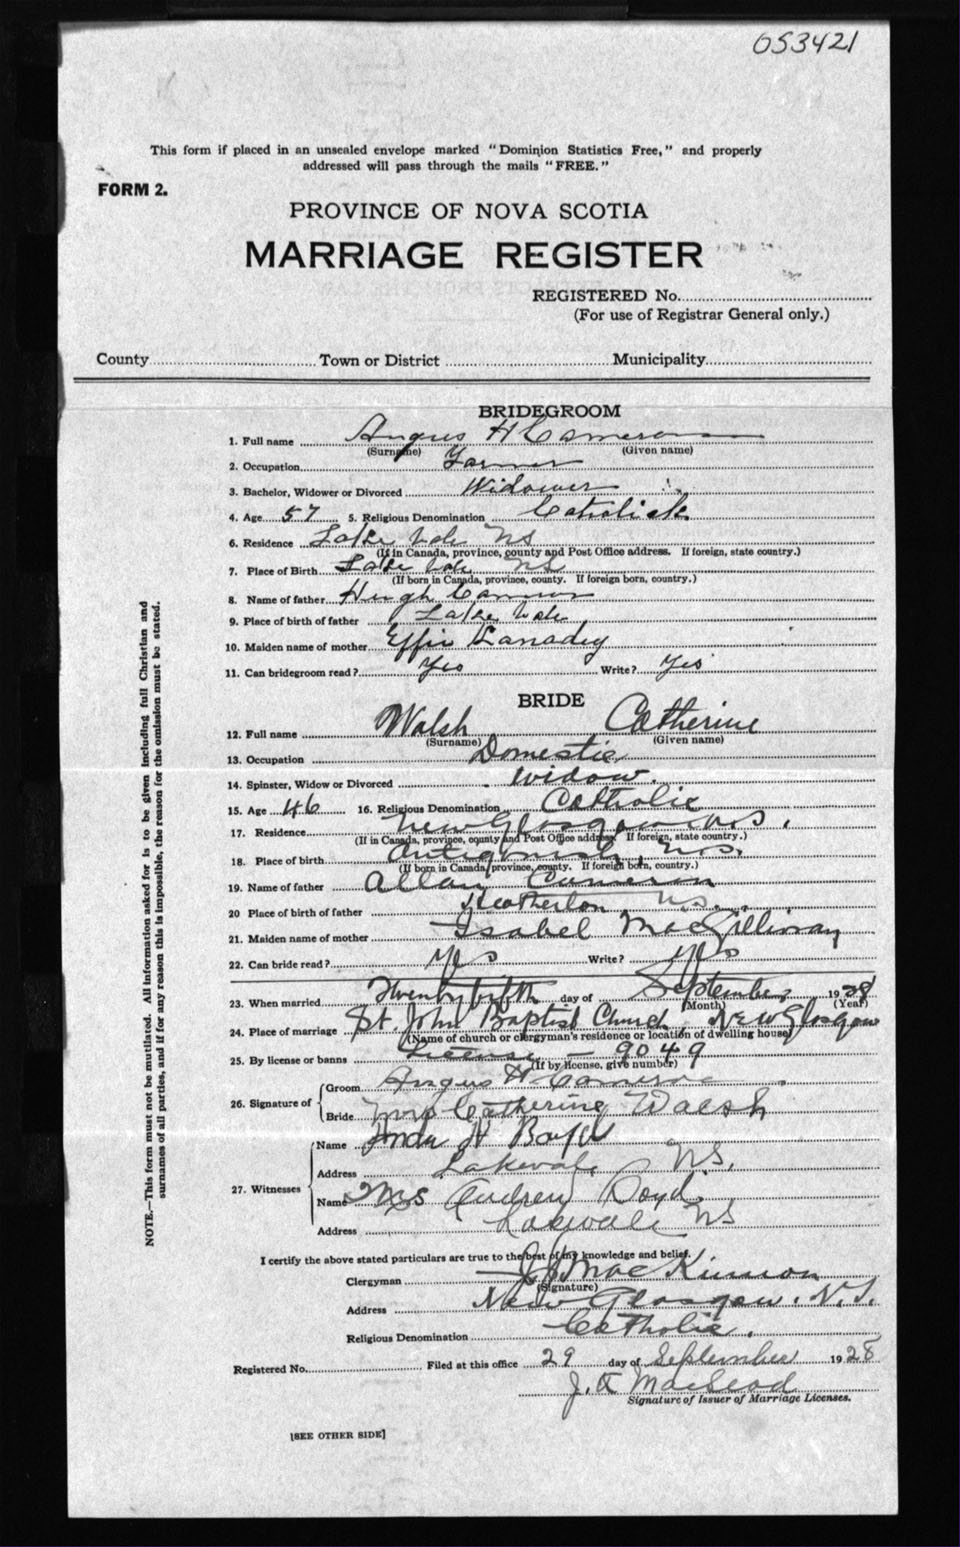 053421
This form if placed in an unsealed envelope marked "Dominion Statistics Free," and properly
addressed will pass through the mails "FREE."
FORM 2.
PROVINCE OF NOVA SCOTIA
MARRIAGE REGISTER
REGISTERED No.
(For use of Registrar General only.)
County Town or District Municipality
BRIDEGROOM
1. Full name Angus H Cameron
(Surname) (Given name)
2. Occupation Farmer
3. Bachelor, Widower or Divorced Widower
4. Age 57 5. Religious Denomination Catholick
6. Residence Lake Vale NS
(If in Canada, province, county and Post Office address. If foreign, state country.)
7. Place of Birth Lake Vale NS
(If born in Canada, province, county. If foreign born, country.)
8. Name of father Hugh
9. Place of birth of father Lake Vale
10. Maiden name of mother Effie
11. Can bridegroom read? Yes Write? Yes
BRIDE
12. Full name Walsh Catherine
(Surname) (Given name)
13. Occupation Domestic
14. Spinster, Widow or Divorced Widow.
15. Age 46 16. Religious Denomination Catholic
17. Residence New Glasgow N.S.
(If in Canada, province, county and Post Office address. If foreign, state country.)
18. Place of birth Antigonish, N.S.
(If born in Canada, province, county. If foreign born, country.)
19. Name of father Allan Cameron
20 Place of birth of father Heatherton N.S.
21. Maiden name of mother Isabel MacGillivray
22. Can bride read? Yes Write? Yes
23. When married Twenty fifth day of September 1928
(Month) (Year)
24. Place of marriage St. John Baptist Church New Glasgow
(Name of church or clergyman's residence or location of dwelling house)
25. By license or banns License - 9049
(If by license, give number)
26. Signature of Groom Angus H Cameron
Bride Mrs Catherine Walsh
27. Witnesses Name H Boyd
Address Lakevale N.S.
Name Mrs Andrew Boyd
Address Lakevale NS
I certify the above stated particulars are true to the best of my knowledge and belief.
Clergyman MacKinnon
(Signature)
Address New Glasgow, N.S.
Religious Denomination Catholic.
Registered No. Filed at this office 29 day of September 1928
J. MacLeod
Signature of Issuer of Marriage Licenses.
[SEE OTHER SIDE]
NOTE.—This form must not be mutilated. All information asked for is to be given including full Christian and
surnames of all parties, and if for any reason this is impossible, the reason for the omission must be stated.